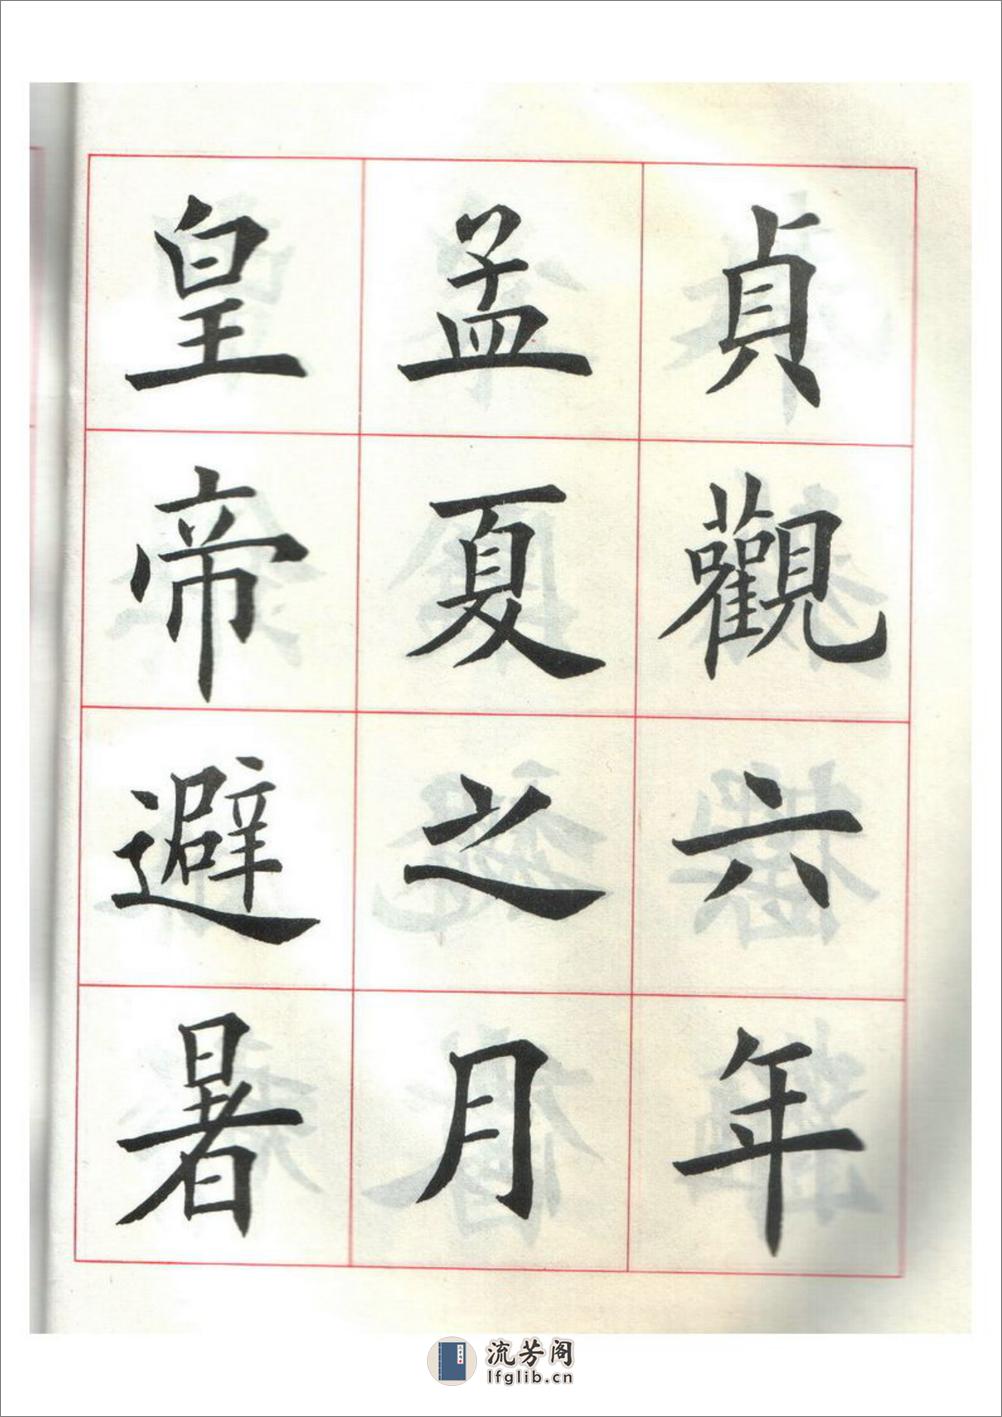 貞觀六年
孟夏之月
皇帝避暑
流芳阁
lfglib.cn